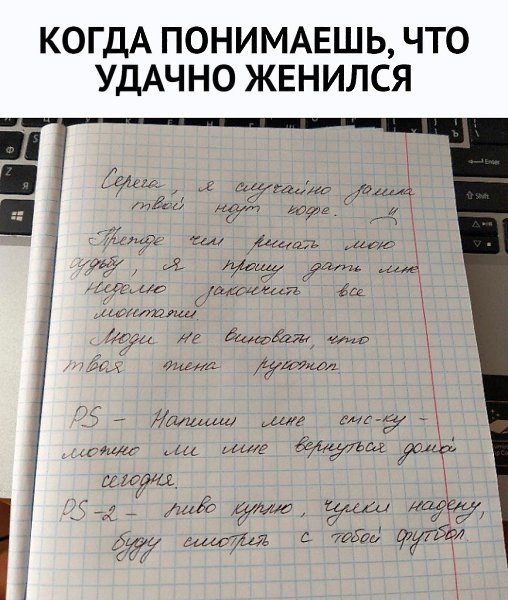 КОГДА ПОНИМАЕШЬ, ЧТО
УДАЧНО ЖЕНИЛСЯ
Серега, я случайно залила
твой ноут кофе.
Прежде чем решать мою
судьбу, я прошу дать мне
неделю закончить все
монтажи.
Люди не виноваты, что
твоя жена рукожоп.
PS – Напиши мне смс-ку –
можно ли мне вернуться домой
сегодня.
PS-2 – пиво куплю, чулки надену,
буду смотреть с тобой футбол.
Enter
Shift
Z
Я
Ф
Ъ